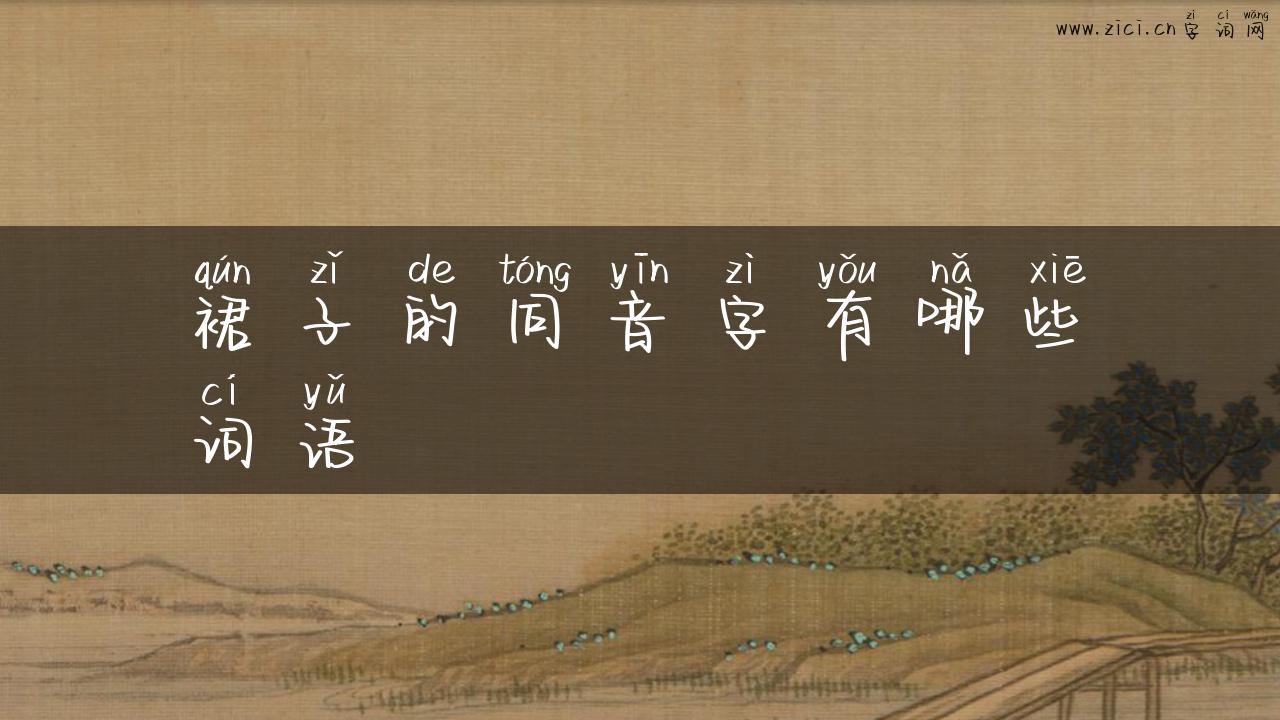 zì cí wǎng
www.zici.cn字词网
qún zǐ de tóng yīn zì yǒu nǎ xiē
裙子的同音字有哪些
cí yǔ
词语